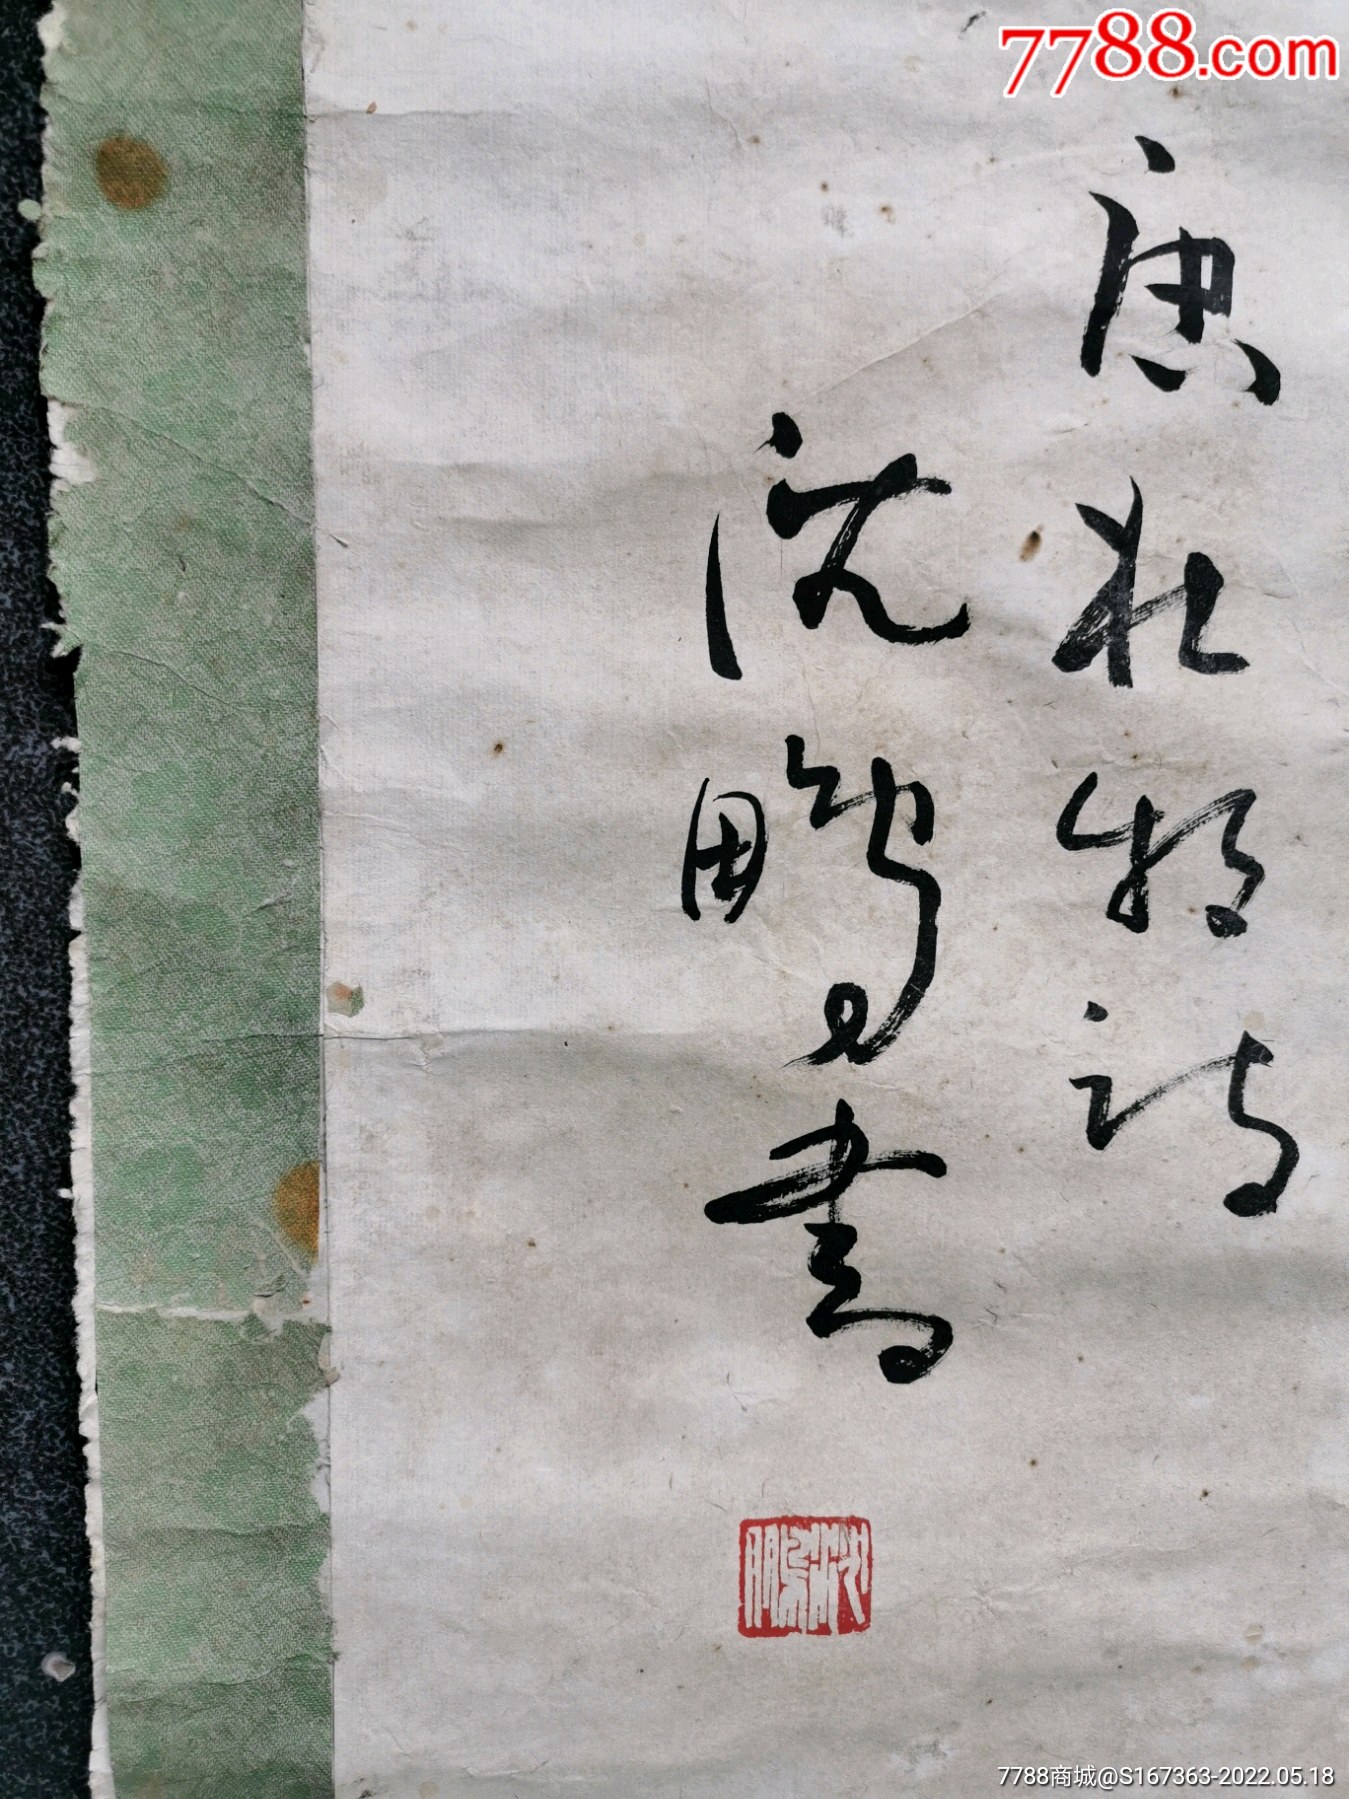 7788.com
唐杜牧诗
沈鹏书
沈鹏
7788商城@S167363-2022.05.18